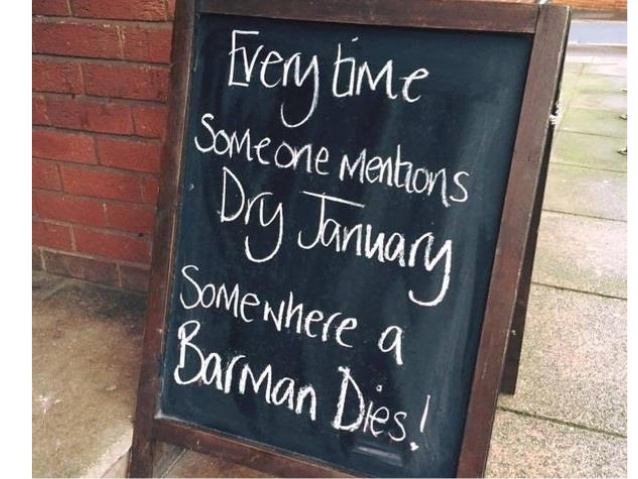 Every time
Someone mentions
Dry January
Somewhere a
Barman Dies!